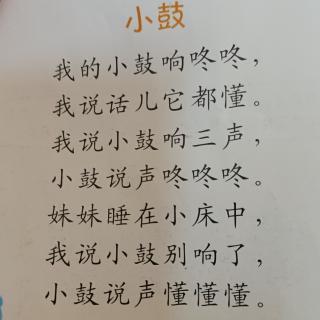 小鼓
我的小鼓响咚咚，
我说话儿它都懂。
我说小鼓响三声，
小鼓说声咚咚咚。
妹妹睡在小床中，
我说小鼓别响了，
小鼓说声懂懂懂。